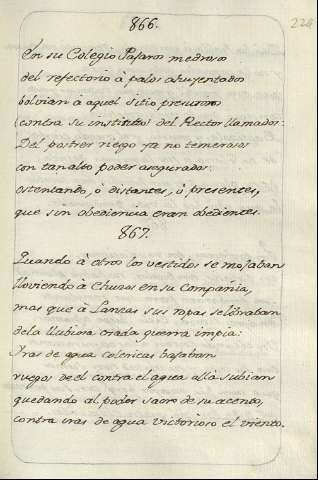 866.
224
En su Colegio Pajaros medroso
del refectorio à palos ahuyentados
bolvian à aquel sitio presurosos
(contra su instituto) del Rector llamados:
Del postrer riego ya no temerosos
con tan alto poder asegurados:
ostentando, ò distantes, ò presentes,
que sin obediencia eran obedientes.
867.
Quando à otros los vestidos se mojaban
lloviendo à Churos en su Compañia,
mas que à Lanzas sus ropas se libraban
dela llubiosa cruda guerra impia:
Iras de agua colericas bajaban
ruegos de el contra el agua allà subian
quedando al poder sacro de su acento,
contra iras de agua victorioso el viento.